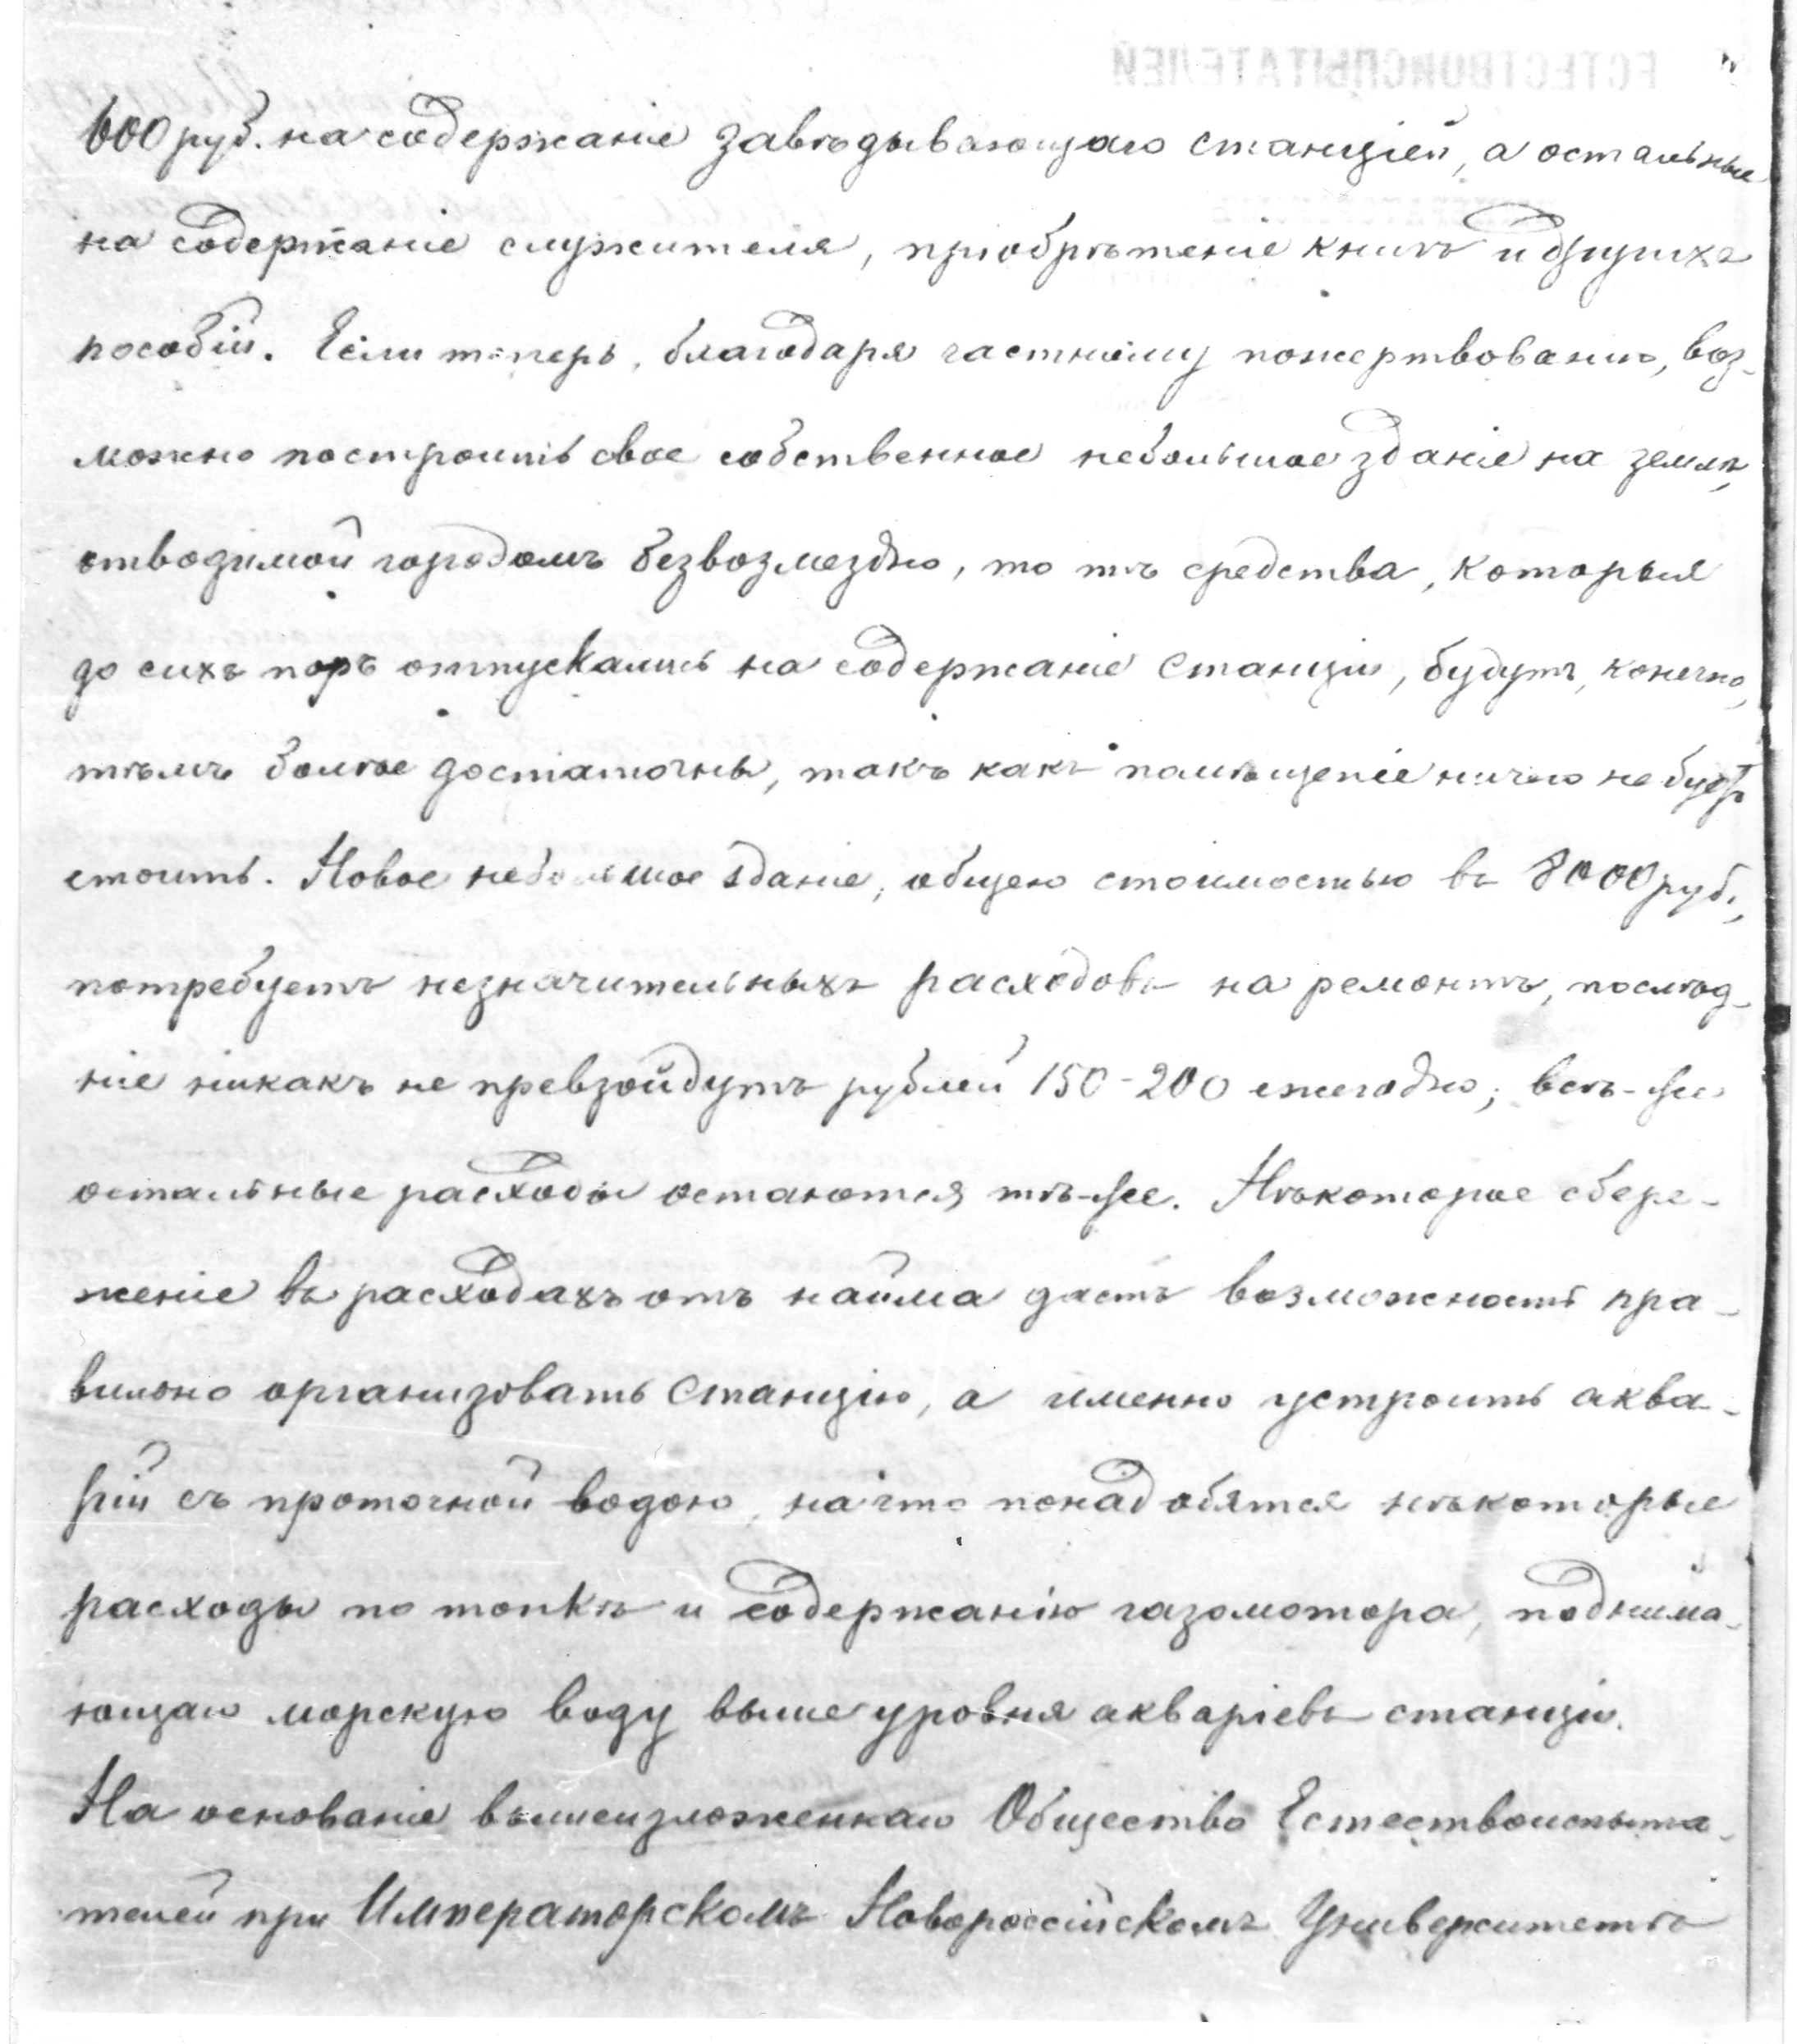 ЕСТЕСТВОИСПЫТАТЕЛЕЙ
600 руб. на содержаніе завѣдывающаго станціей, а остальные
на содержаніе служителя, пріобрѣтеніе книгъ и другихъ
пособій. Если теперь, благодаря частному пожертвованію, воз-
можно построить свое собственное небольшое зданіе на землѣ,
отводимой городомъ безвозмездно, то тѣ средства, которыя
до сихъ поръ отпускались на содержаніе Станціи, будутъ, конечно,
тѣмъ болѣе достаточны, такъ какъ помѣщеніе ничего не будетъ
стоить. Новое небольшое зданіе, общею стоимостью въ 8000 руб.,
потребуетъ незначительныхъ расходовъ на ремонтъ, послѣд-
ніе никакъ не превзойдутъ рублей 150-200 ежегодно; всѣ-же
остальные расходы остаются тѣ-же. Нѣкоторое сбере-
женіе въ расходахъ отъ найма дастъ возможность пра-
вильно организовать Станцію, а именно устроить аква-
рій съ проточной водою, на что понадобятся нѣкоторые
расходы по топкѣ и содержанію газомотора, поднима-
ющаго морскую воду выше уровня акваріевъ станціи.
На основаніи вышеизложеннаго Общество Естествоиспыта-
телей при Императорскомъ Новороссійскомъ Университетѣ